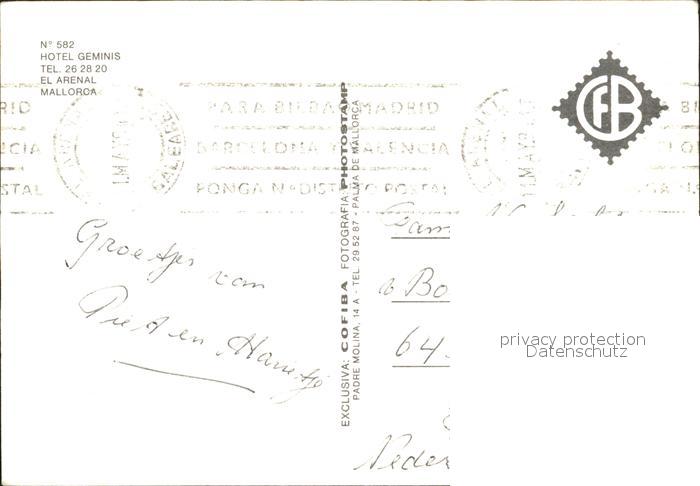 Nº 582
HOTEL GEMINIS
TEL. 26 28 20
EL ARENAL
MALLORCA
PARA BILBAO MADRID
BARCELONA Y VALENCIA
PONGA Nº DISTRITO POSTAL
EXCLUSIVA: COFIBA FOTOGRAFIA: PHOTOSTAMP
PADRE MOLINA, 14 A - TEL. 29 52 87 - PALMA DE MALLORCA
CFB
Groetjes van
Piet en Marietje
Fam
Bo
64
Neder
privacy protection
Datenschutz